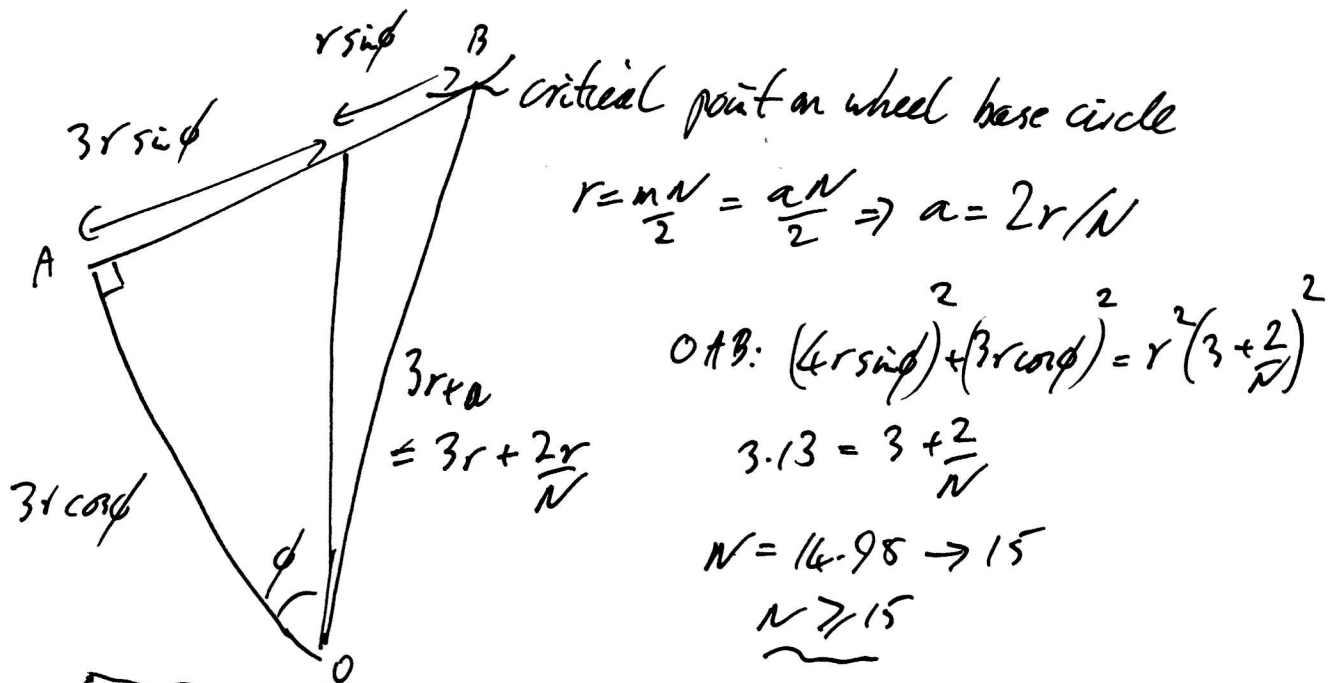 r sinφ
B
critical point on wheel base circle
3r sinφ
r = mN/2 = aN/2 ⇒ a = 2r/N
A
OAB: (4r sinφ)² + (3r cosφ)² = r²(3 + 2/N)²
3r+a
≤ 3r + 2r/N
3.13 = 3 + 2/N
3r cosφ
N = 14.98 → 15
φ
N ≥ 15
O